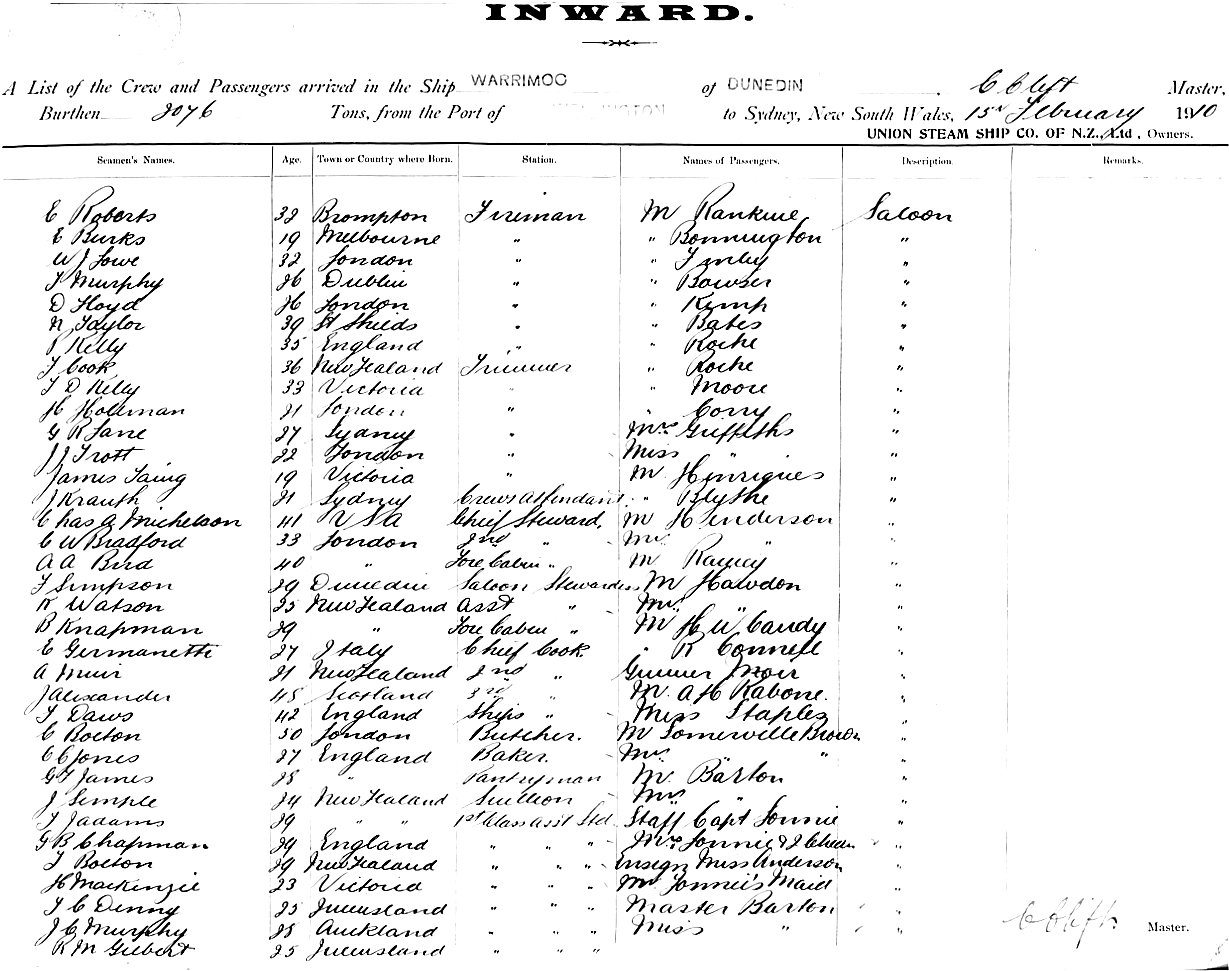 INWARD.
A List of the Crew and Passengers arrived in the Ship WARRIMOO of DUNEDIN, C Clift Master,
Burthen 2076 Tons, from the Port of to Sydney, New South Wales, 15th February 1910
UNION STEAM SHIP CO. OF N.Z., Ltd, Owners.
Seamen's Names. Age. Town or Country where Born. Station. Names of Passengers. Description. Remarks.
E Roberts 32 Brompton Fireman Mr Rankine Saloon
E Burks 19 Melbourne " " Bonnington "
W J Lowe 32 London " " "
T Murphy 26 Dublin " " Bowser "
D Floyd 26 London " " Kemp "
N Taylor 39 St Shields " " Bates "
P Kelly 35 England " " Roche "
T Cook 36 New Zealand Trimmer " Roche "
T D Kelly 33 Victoria " " Moore "
H Holeman 21 London " " Corry "
G R Lane 27 Sydney " Mrs Griffiths "
J J Trott 22 London " Miss " "
James Laing 19 Victoria " Mr Henriques "
J Krauth 21 Sydney Crews Attendant " Blythe "
Chas A Michelson 41 USA Chief Steward Mr Henderson "
C W Bradford 33 London 2nd " Mrs " "
A A Bird 40 " Fore Cabin " Mr "
F Simpson 29 Dunedin Saloon Stewardess Mr Hawdon "
K Watson 25 New Zealand Asst " Mrs " "
B Knapman 29 " Fore Cabin " Mr H W Candy "
E Germanetti 27 Italy Chief Cook " R Connell "
A Muir 21 New Zealand 2nd " Gunner Moir "
J Alexander 45 Scotland 3rd " Mr. A H Rabone. "
T Daws 42 England Ships " Miss Staples "
C Bolton 50 London Butcher. Mr Somerville Brown "
C C Jones 27 England Baker. Mrs " "
G F James 28 " Pantryman Mr. Barton "
J Semple 24 New Zealand Scullion Mrs " "
T J Adams 29 " " 1st Class Asst Std. Staff Capt Lonnie "
G B Chapman 29 England " " " Mrs Lonnie & 2 "
F Bolton 29 New Zealand " " " Ensign Miss Anderson "
H Mackenzie 23 Victoria " " " Mrs Lonnie's Maid "
T C Denny 25 Queensland " " " Master Barton "
J C Murphy 28 Auckland " " " Miss " "
R M Gilbert 25 Queensland " " "
C Clift. Master.